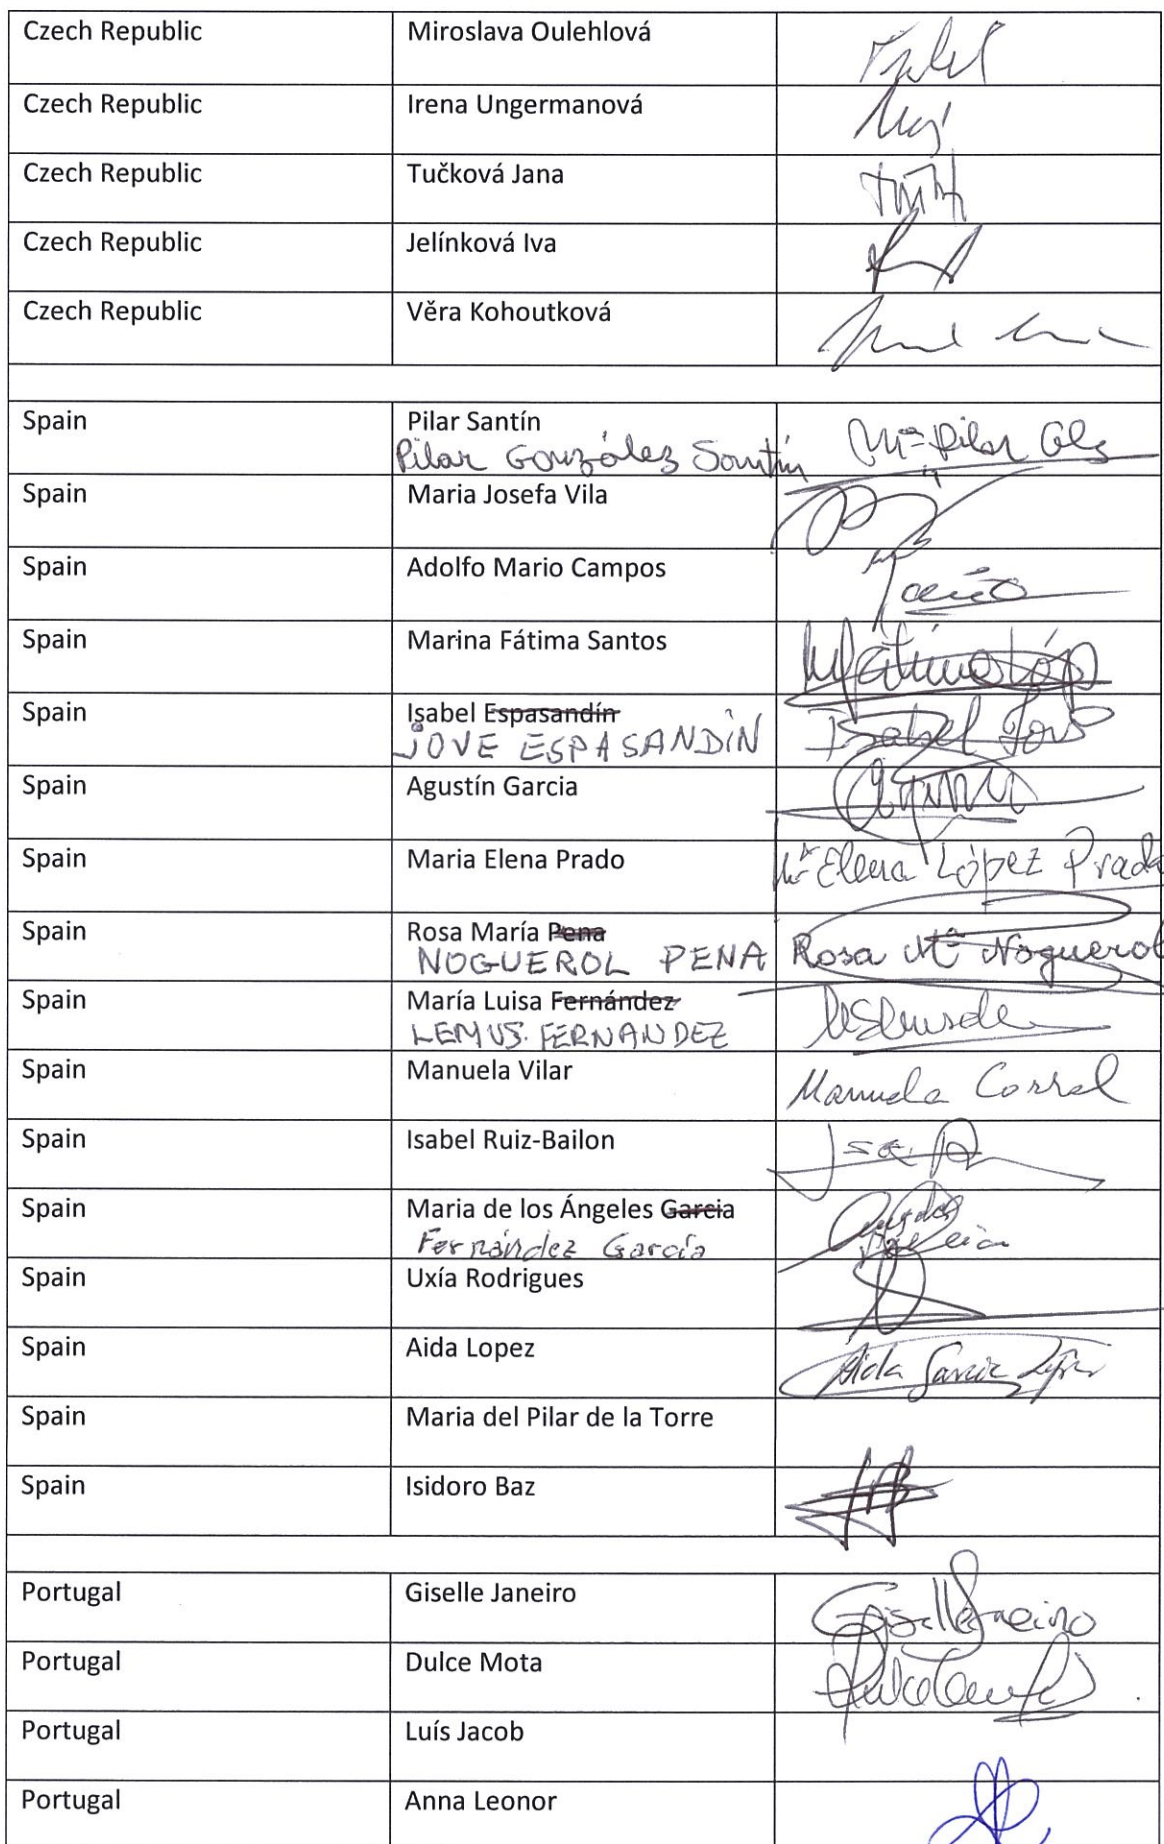 Czech Republic Miroslava Oulehlová
Czech Republic Irena Ungermanová
Czech Republic Tučková Jana
Czech Republic Jelínková Iva
Czech Republic Věra Kohoutková
Spain Pilar Santín
Pilar González Santín Mª Pilar Glz
Spain Maria Josefa Vila
Spain Adolfo Mario Campos
Spain Marina Fátima Santos
Spain Isabel Espasandín
JOVE ESPASANDÍN Isabel Jove
Spain Agustín Garcia
Spain Maria Elena Prado Mª Elena López Prado
Spain Rosa María Pena
NOGUEROL PENA Rosa Mª Noguerol
Spain María Luisa Fernández
LEMUS FERNANDEZ
Spain Manuela Vilar Manuela Corral
Spain Isabel Ruiz-Bailon
Spain Maria de los Ángeles Garcia
Fernández García
Spain Uxía Rodrigues
Spain Aida Lopez Aida
Spain Maria del Pilar de la Torre
Spain Isidoro Baz
Portugal Giselle Janeiro Giselle Janeiro
Portugal Dulce Mota
Portugal Luís Jacob
Portugal Anna Leonor